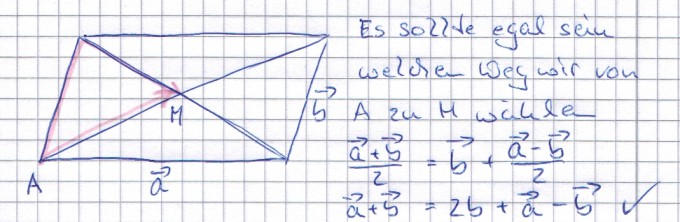 Es sollte egal sein
welchen Weg wir von
A zu M wählen
(a⃗ + b⃗)/2 = b⃗ + (a⃗ - b⃗)/2
a⃗ + b⃗ = 2b + a⃗ - b⃗ ✓
M
b⃗
A
a⃗